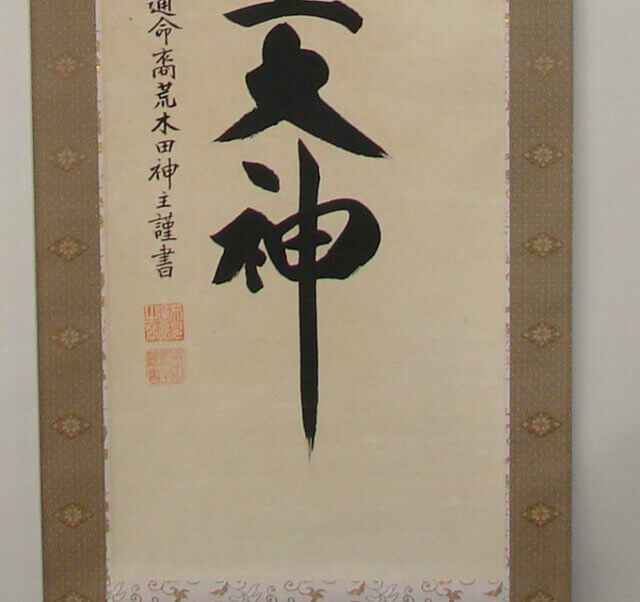 大神
通命裔荒木田神主謹書